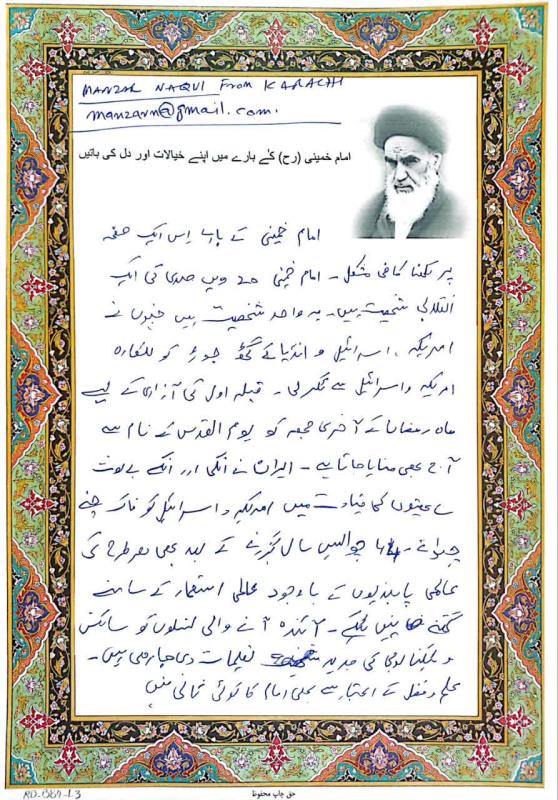 MANZAR NAQVI From KARACHI
manzarn@gmail.com.
امام خمینی (رح) کے بارے میں اپنے خیالات اور دل کی باتیں
امام خمینی کے بارے اس ایک صفحہ
پر لکھنا کافی مشکل - امام خمینی ویں صدی کی ایک
انقلابی شخصیت ہیں - یہ واحد شخصیت ہیں جنہوں نے
امریکہ، اسرائیل و انڈیا کے گٹھ جوڑ کو للکارہ
امریکہ و اسرائیل سے ٹکر لی - قبلہ اول کی آزادی کے لیے
ماہ رمضان کے آخری جمعہ کو یوم القدس کے نام سے
آج بھی منایا جاتا ہے - ایران نے انکی اور انکے بے لوث
ساتھیوں کی قیادت میں امریکہ و اسرائیل کو ناک چنے
چبوائے - 44 چوالیس سال گزرنے کے بعد بھی ہر طرح کی
عالمی پابندیوں کے باوجود عالمی استعمار کے سامنے
گھٹنے نہیں ٹیکے - آئندہ آنے والی نسلوں کو سائنس
و ٹیکنالوجی کی جدید تعلیمات دی جا رہی ہیں -
علم و فضل کے اعتبار سے بھی امام کا کوئی ثانی نہیں
حق چاپ محفوظ